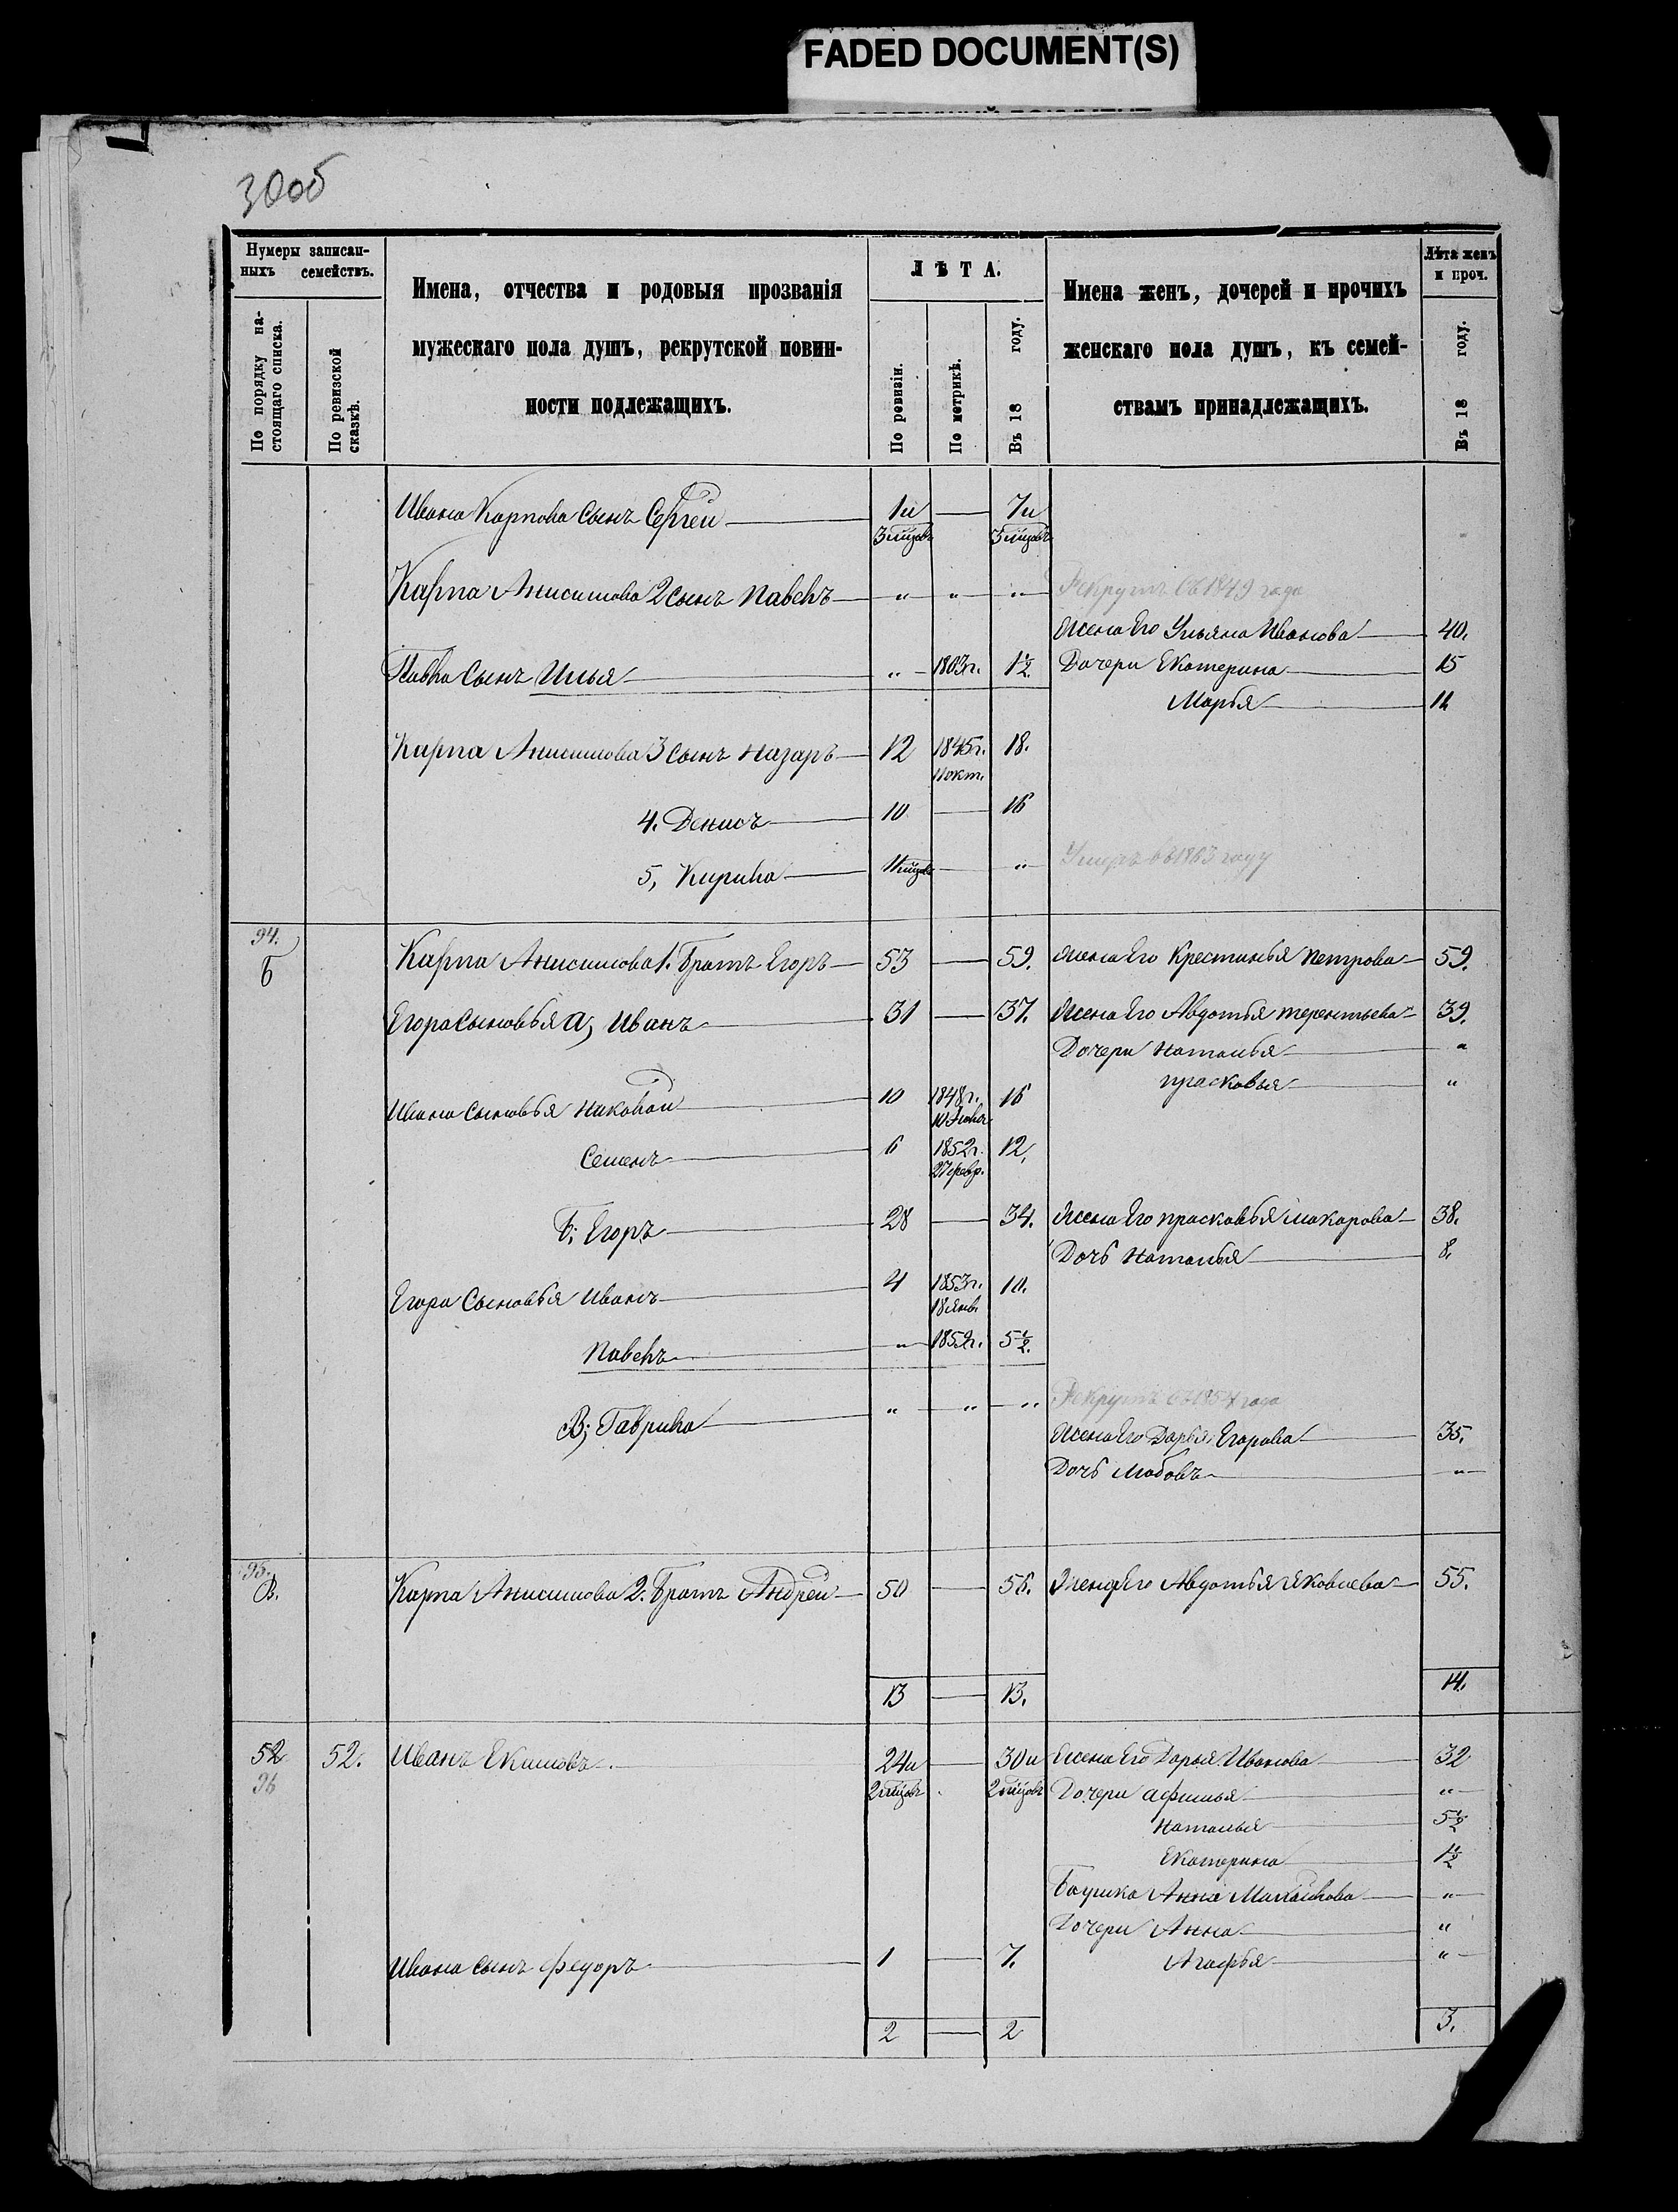 FADED DOCUMENT(S)
30об
Нумеры записан-
ныхъ семействъ.
По порядку на-
стоящаго списка.
По ревизской
сказкѣ.
Имена, отчества и родовыя прозванія
мужескаго пола душъ, рекрутской повин-
ности подлежащихъ.
ЛѢТА.
По ревизіи.
По метрикѣ.
Въ 18 году.
Имена женъ, дочерей и прочихъ
женскаго пола душъ, къ семей-
ствамъ принадлежащихъ.
Лѣта женъ
и проч.
Въ 18 году.
Ивана Карпова сынъ Сергей 1 и — 7 и
3 мѣцовъ 3 мѣцовъ
Карпа Анисимова 2 сынъ Павелъ " " " Рекрутъ съ 1849 года
Жена Его Ульяна Иванова 40.
Павла сынъ Илья " 1863 г. 1½. Дочери Екатерина 15
Марья 11
Карпа Анисимова 3 сынъ Назаръ 12 1845 г. 18.
11 окт.
4. Денисъ 10 — 16
5, Кирила мѣцовъ — " Умеръ въ 1863 году
94.
Б Карпа Анисимова 1. Братъ Егоръ 53 — 59. Жена Его Крестинья Петрова 59.
Егора сыновья а, Иванъ 31 — 37. Жена Его Авдотья Терентьева 39.
Дочери Наталья "
Прасковья "
Ивана сыновья Николай 10 1848 г. 16
Семенъ 6 1852 г. 12.
27 февр.
Б; Егоръ 28 — 34. Жена Его Прасковья Макарова 38.
Дочь Наталья 8.
Егора Сыновья Иванъ 4 1853 г. 10.
18 янв.
Павелъ " 185 г. 5½.
В; Гаврила " " " Рекрутъ съ 1854 года
Жена Его Дарья Егорова 35.
Дочь Любовь "
95.
В. Карпа Анисимова 2. Братъ Андрей 50 — 56. Жена Его Авдотья Яковлева 55.
13 — 13. 14.
52 52. Иванъ Екимовъ 24 и — 30 и Жена Его Дарья Иванова 32
96 2 мѣцовъ 2 мѣцовъ Дочери Афимья "
Наталья 5½
Екатерина 1½
Анна "
Дочери Анна "
Ивана сынъ Федоръ 1 — 7. Агафья "
2 — 2 3.